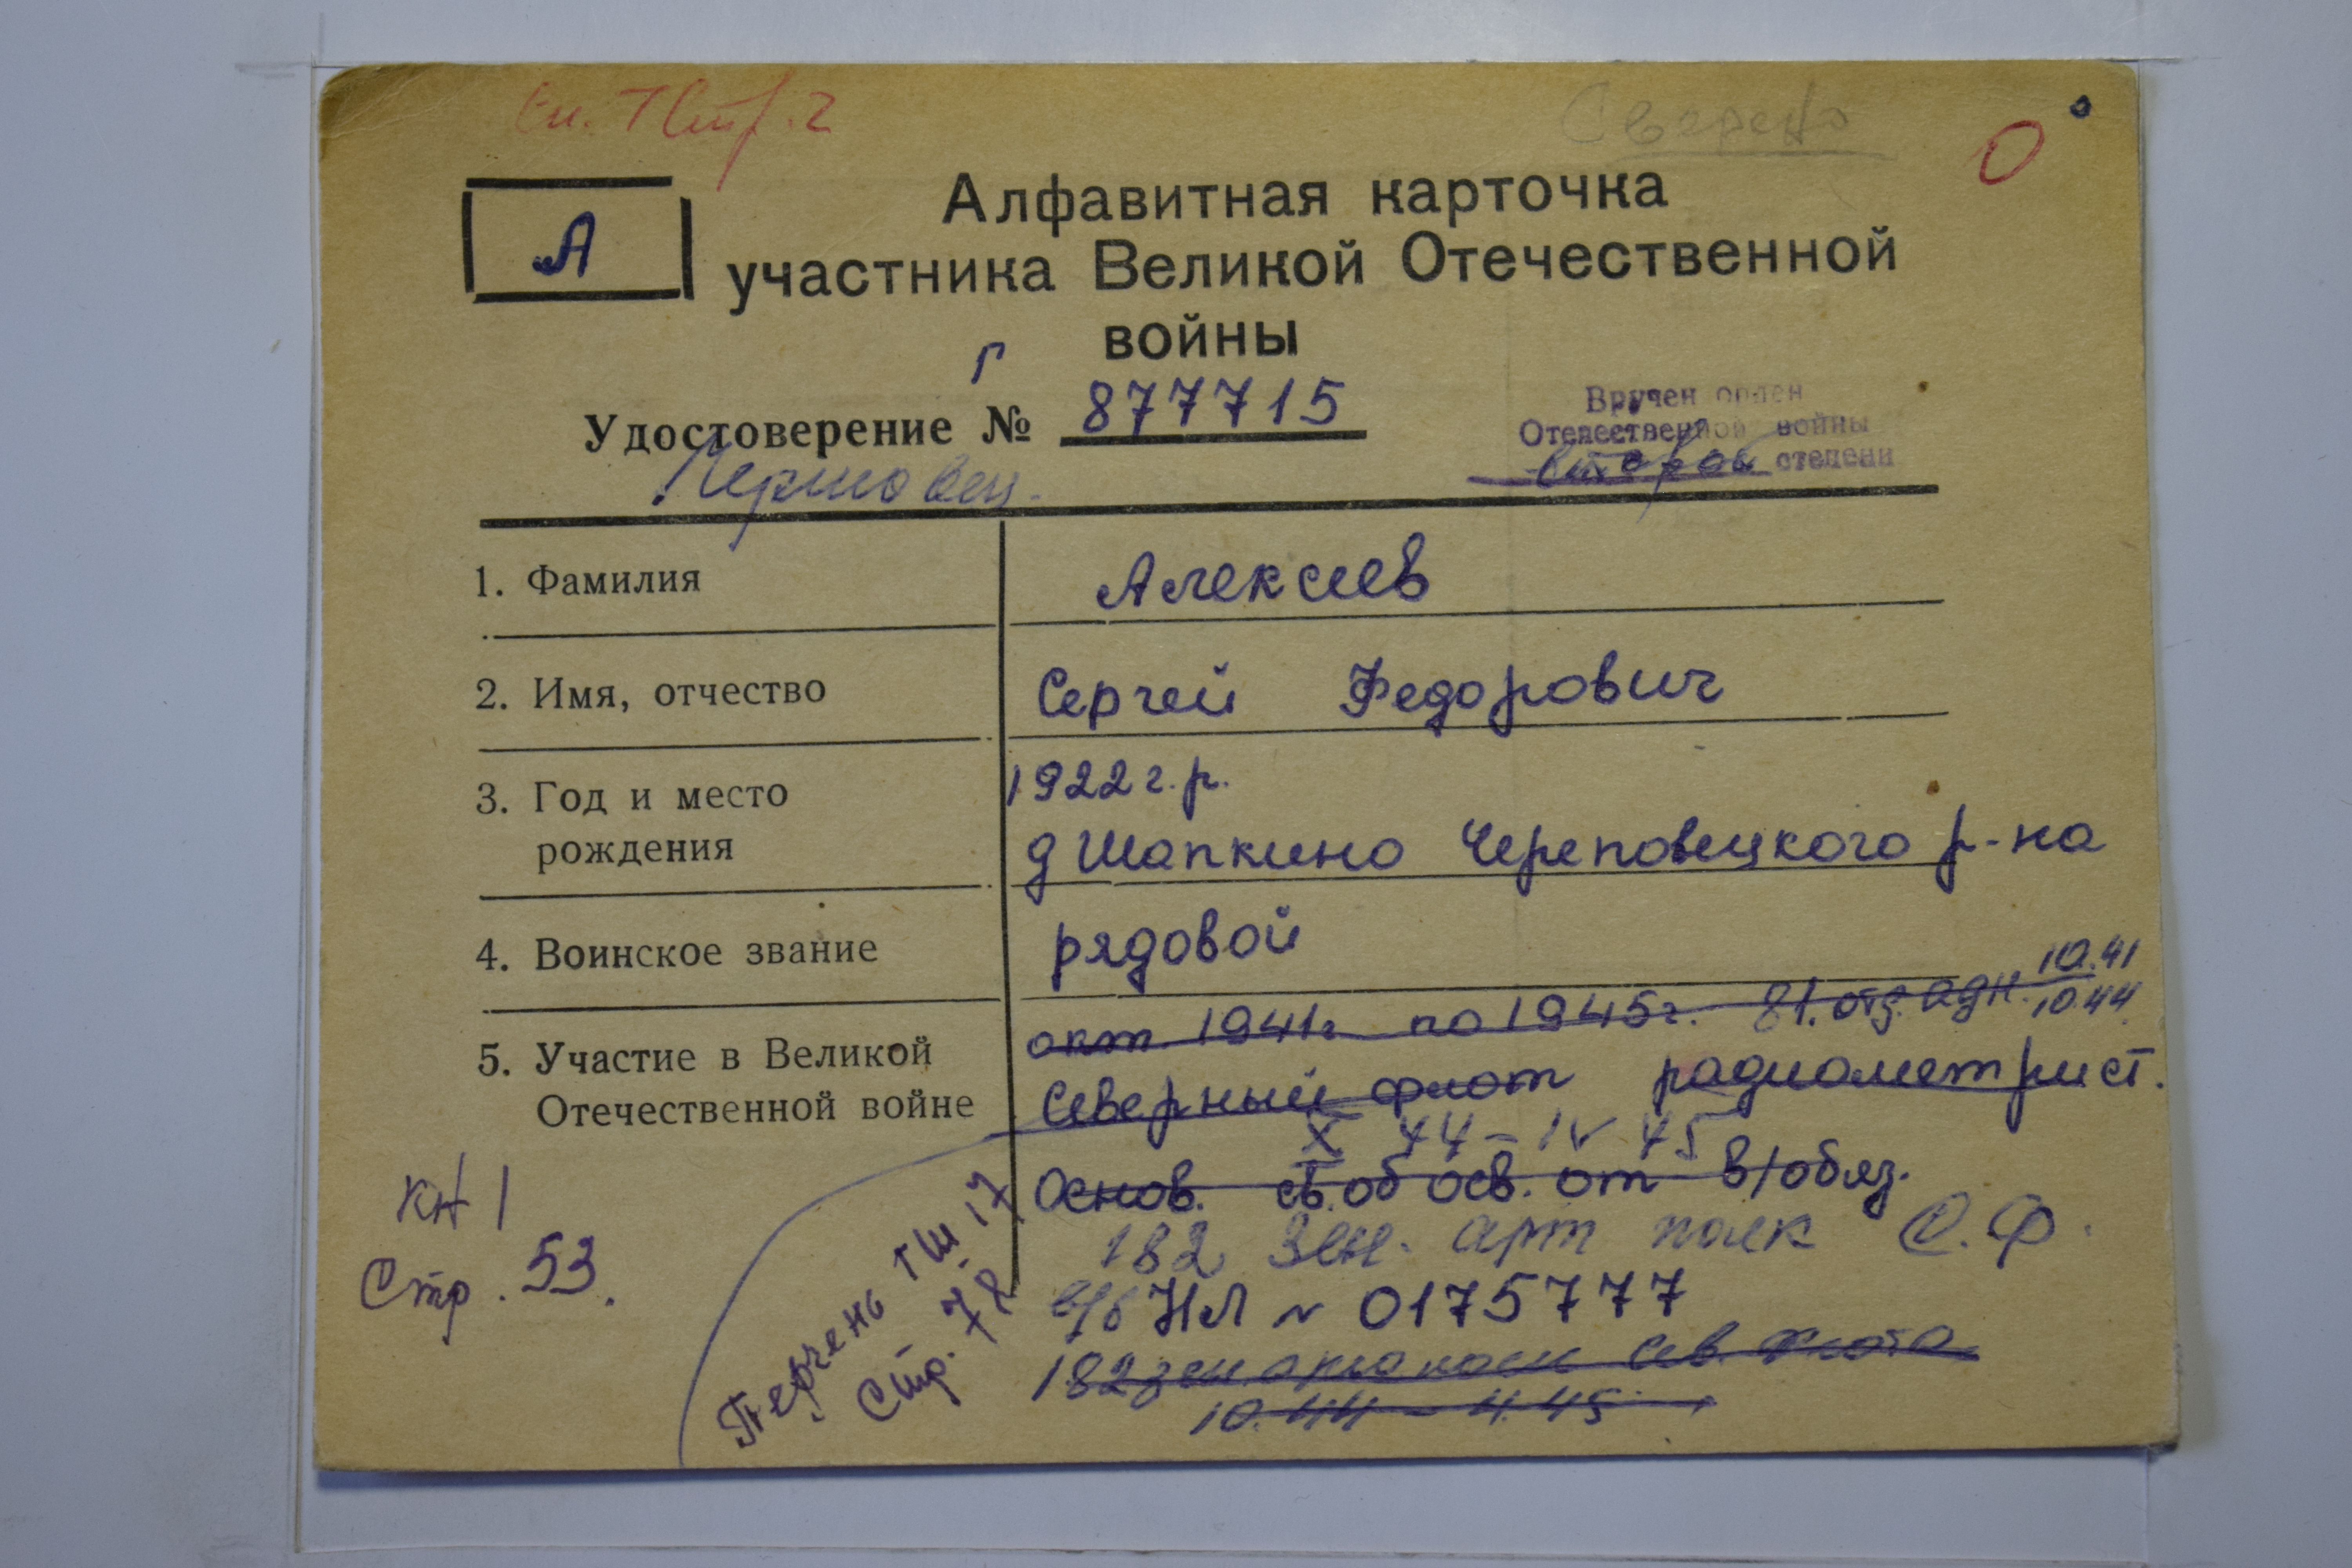 Сп. 7 Стр. 2
Сверено
О
А
Алфавитная карточка
участника Великой Отечественной
войны
Г
Удостоверение № 877715
Вручен орден
Отечественной войны
второй степени
1. Фамилия
Алексеев
2. Имя, отчество
Сергей Федорович
3. Год и место
рождения
1922 г.р.
д Шапкино Череповецкого р-на
4. Воинское звание
рядовой
5. Участие в Великой
Отечественной войне
окт. 1941г по 1945г. 81. отд. адн. 10.41
10.44
Северный флот радиометрист.
X 44 - IV 45
Основ. св. об осв. от в/обяз.
182 Зен. арт полк С.Ф.
в/б НЛ № 0175777
182 зен арт полк Сев. Флота
10.44 - 4.45
КН 1
Стр. 53.
Перчень ГШ 17
Стр. 72